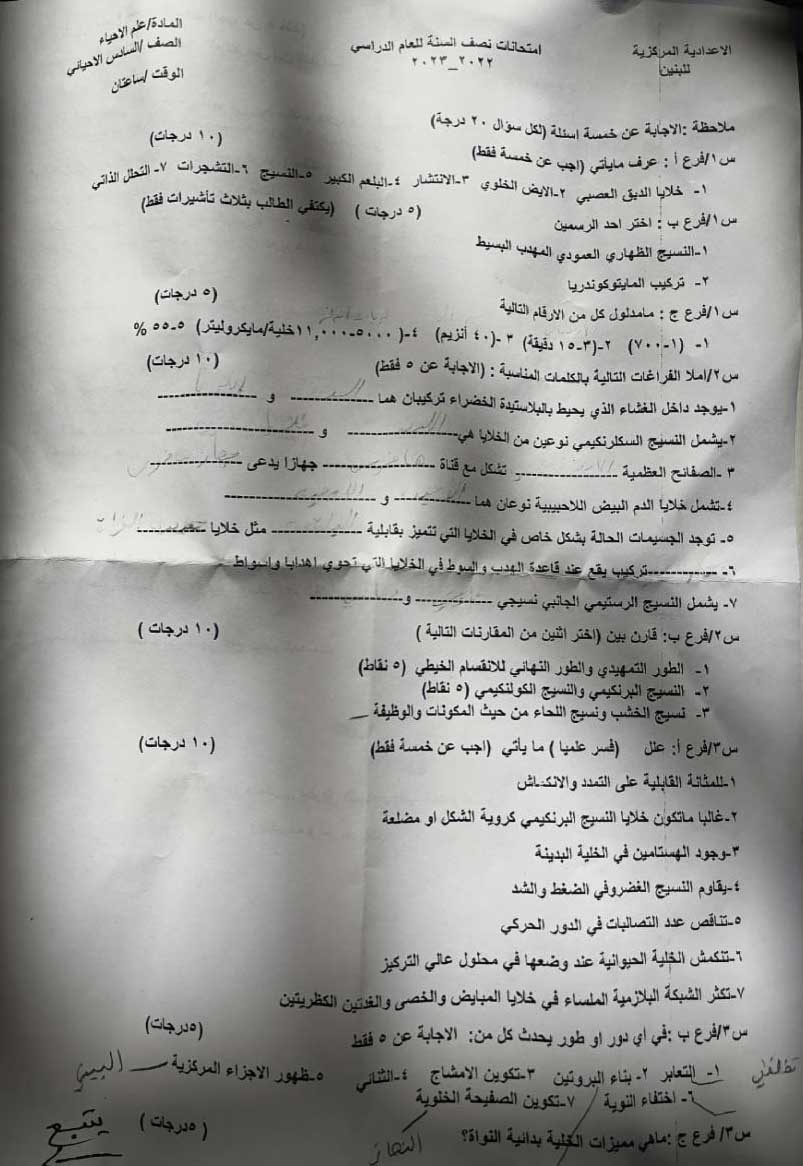 الاعدادية المركزية للبنين
امتحانات نصف السنة للعام الدراسي
٢٠٢٢_٢٠٢٣
المادة/علم الاحياء
الصف /السادس الاحيائي
الوقت /ساعتان
ملاحظة :الاجابة عن خمسة اسئلة (لكل سؤال ٢٠ درجة)
س١/فرع أ : عرف مايأتي (اجب عن خمسة فقط) (١٠ درجات)
١- خلايا الدبق العصبي ٢-الايض الخلوي ٣-الانتشار ٤-البلعم الكبير ٥-النسيج ٦-التشجرات ٧-التحلل الذاتي
س١/فرع ب : اختر احد الرسمين (٥ درجات ) (يكتفي الطالب بثلاث تأشيرات فقط)
١-النسيج الظهاري العمودي المهدب البسيط
٢- تركيب المايتوكوندريا
س١/فرع ج : مامدلول كل من الارقام التالية (٥ درجات)
١- (١-٧٠٠) ٢-(٣-١٥ دقيقة) ٣-(٤٠ أنزيم) ٤-(٥٠٠٠-١١,٠٠٠خلية/مايكروليتر) ٥-٥٥ %
س٢/املا الفراغات التالية بالكلمات المناسبة : (الاجابة عن ٥ فقط) (١٠ درجات)
١-يوجد داخل الغشاء الذي يحيط بالبلاستيدة الخضراء تركيبان هما -------------- و ----------------
٢-يشمل النسيج السكلرنكيمي نوعين من الخلايا هي-------------- و ----------------
٣ -الصفائح العظمية -------------- تشكل مع قناة -------------- جهازا يدعى --------------
٤-تشمل خلايا الدم البيض اللاحبيبية نوعان هما -------------- و ----------------
٥- توجد الجسيمات الحالة بشكل خاص في الخلايا التي تتميز بقابلية -------------- مثل خلايا -----------
٦- --------------تركيب يقع عند قاعدة الهدب والسوط في الخلايا التي تحوي اهدابا واسواط
٧- يشمل النسيج الرستيمي الجانبي نسيجي -------------- و--------------
س٢/فرع ب: قارن بين (اختر اثنين من المقارنات التالية ) (١٠ درجات )
١- الطور التمهيدي والطور النهائي للانقسام الخيطي (٥ نقاط)
٢- النسيج البرنكيمي والنسيج الكولنكيمي (٥ نقاط)
٣- نسيج الخشب ونسيج اللحاء من حيث المكونات والوظيفة
س٣/فرع أ: علل (فسر علميا ) ما يأتي (اجب عن خمسة فقط) (١٠ درجات)
١-للمثانة القابلية على التمدد والانكماش
٢-غالبا ماتكون خلايا النسيج البرنكيمي كروية الشكل او مضلعة
٣-وجود الهستامين في الخلية البدينة
٤-يقاوم النسيج الغضروفي الضغط والشد
٥-تناقص عدد التصالبات في الدور الحركي
٦-تنكمش الخلية الحيوانية عند وضعها في محلول عالي التركيز
٧-تكثر الشبكة البلازمية الملساء في خلايا المبايض والخصى والغدتين الكظريتين
س٣/فرع ب :في أي دور او طور يحدث كل من: الاجابة عن ٥ فقط (٥درجات)
١- التعابر ٢- بناء البروتين ٣-تكوين الامشاج ٤-الثنائي ٥-ظهور الاجزاء المركزية البيني
٦-اختفاء النوية ٧-تكوين الصفيحة الخلوية
س٣/ فرع ج :ماهي مميزات الخلية بدائية النواة؟ (٥درجات )
يتبع